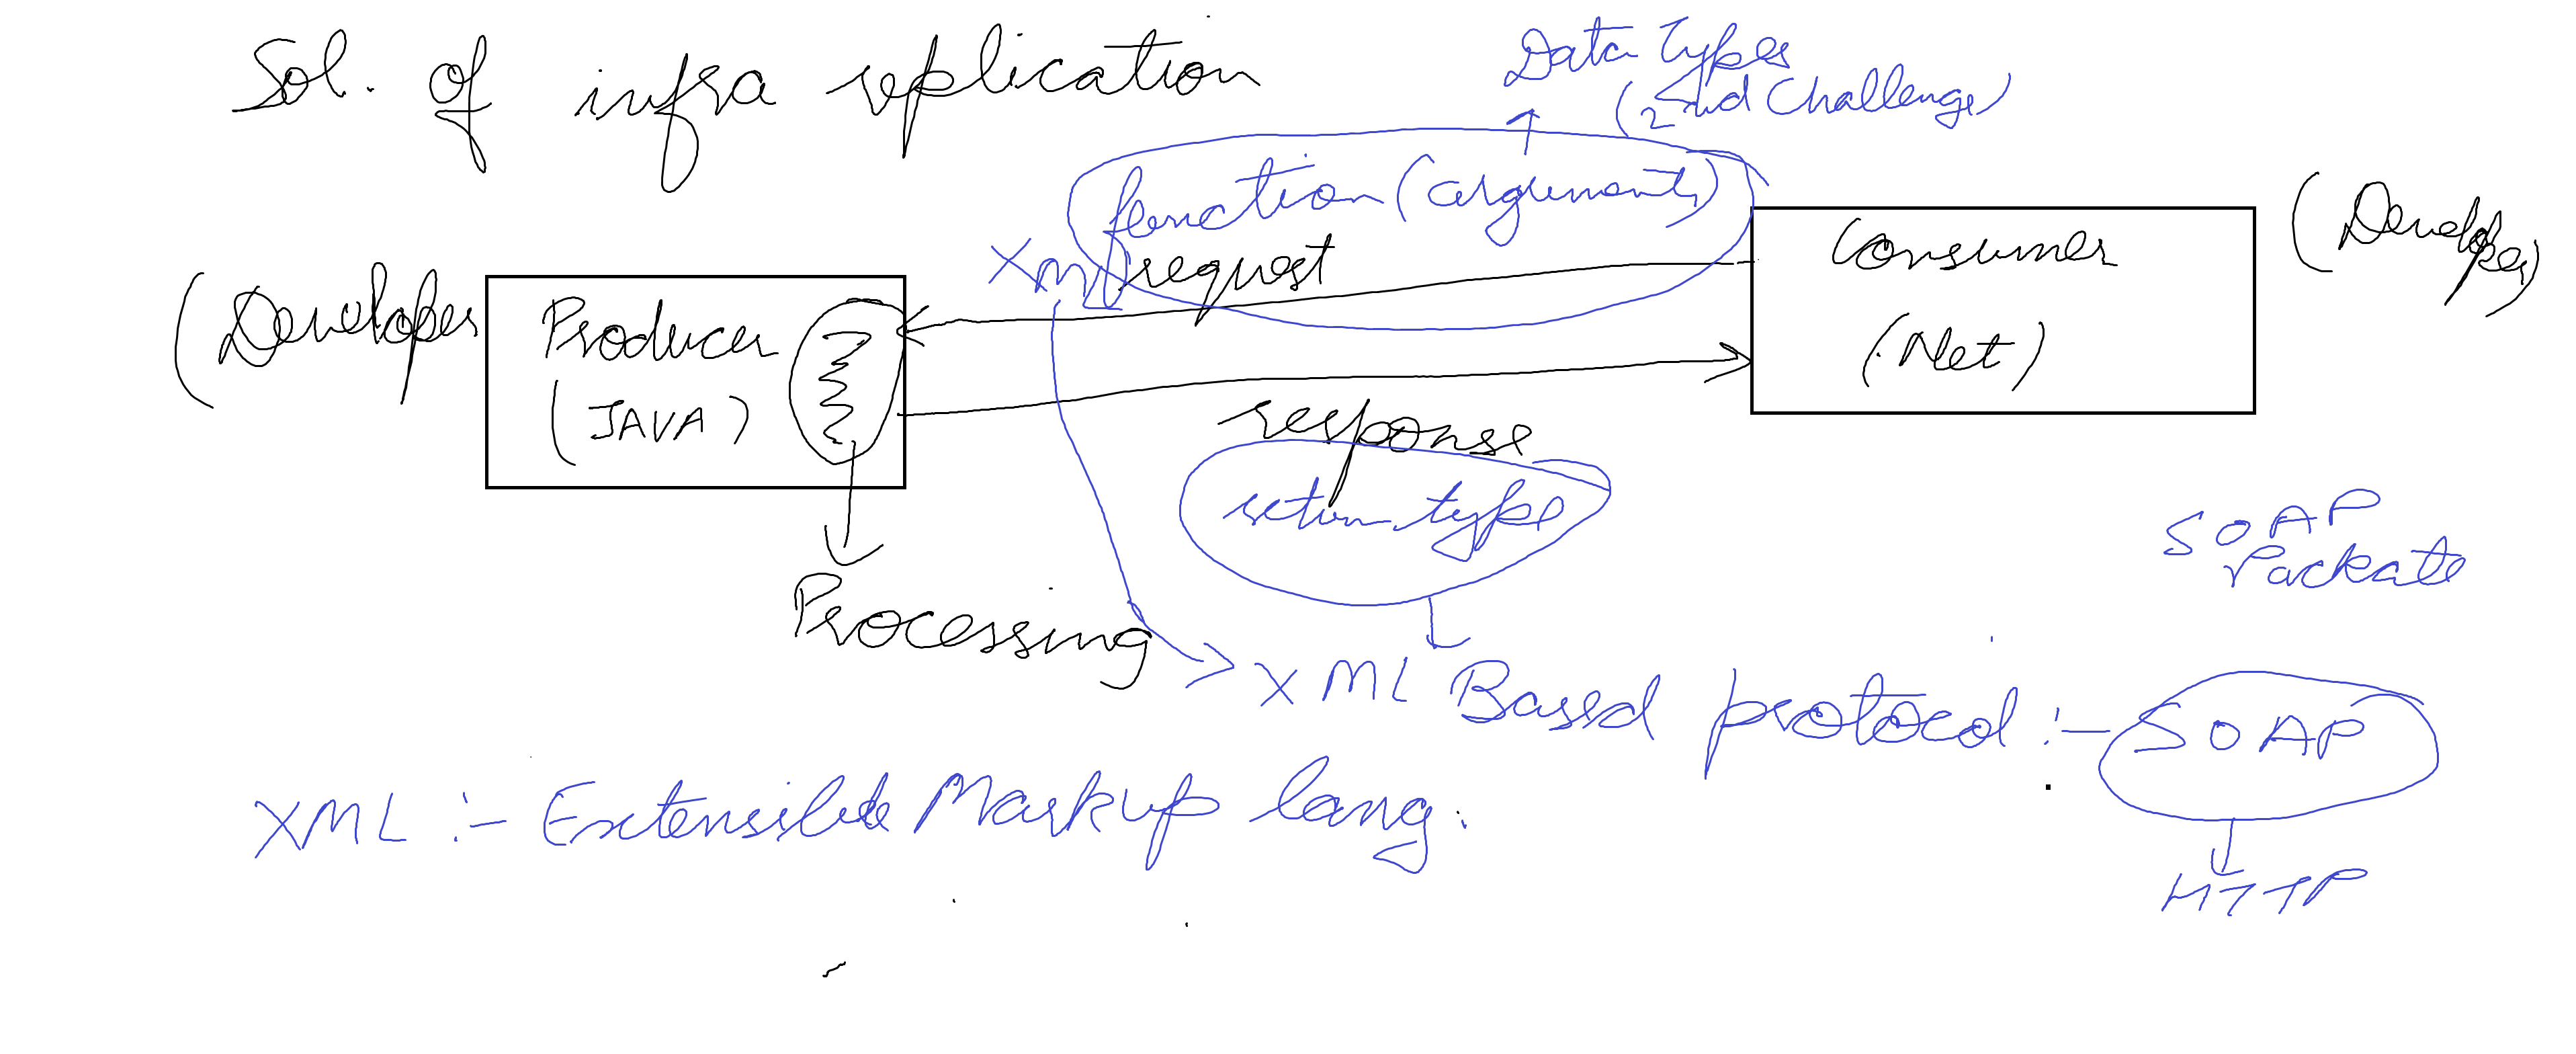 Sol. of infra replication
Data Types
(2nd Challenge)
function(arguments)
XML request
(Developer
Producer
(JAVA)
Consumer
(.Net)
(Developer)
response
return type
Processing
SOAP
Packate
XML Based protocol :- SOAP
HTTP
XML :- Extensible Markup lang.